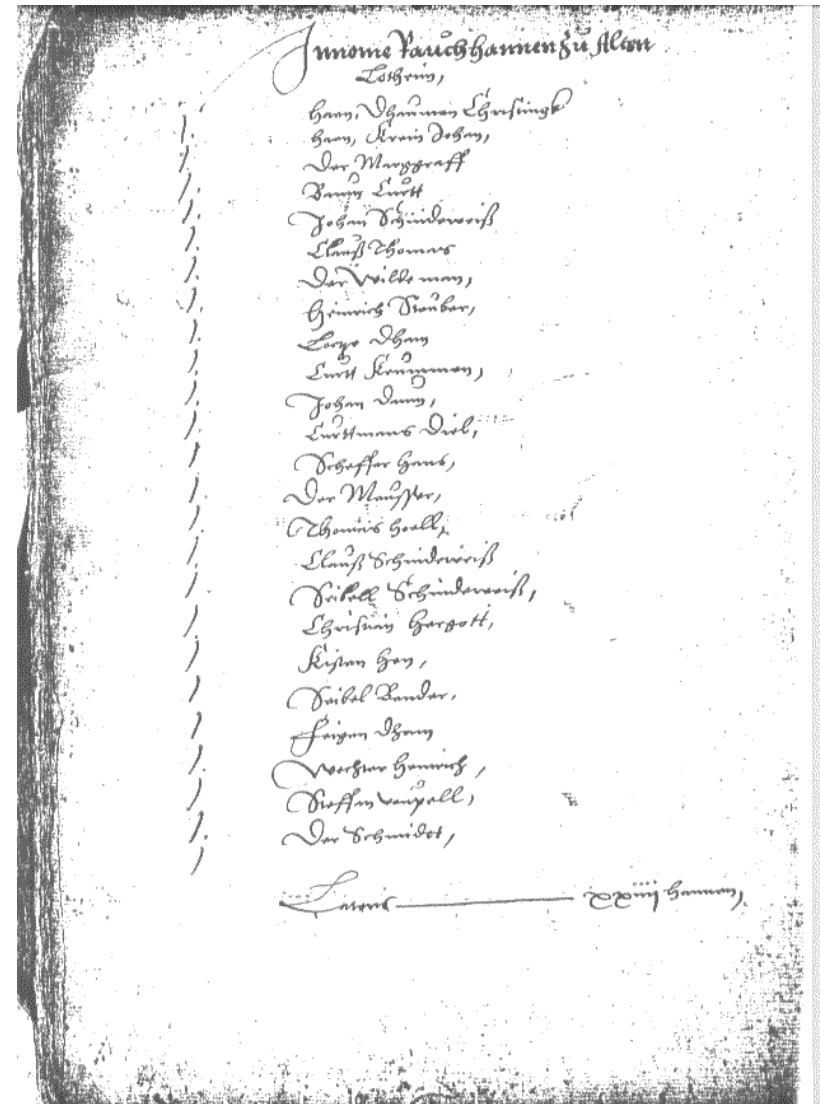 Innome Rauchhannen zu Alten
Lotheim,
1. haen, Dhaumen Christingk
1. haen, Krein Johan,
1. Der Marggraff
1. Curtt
1. Johan Schindeweiß
1. Clauß Thomas
1. Der Wildeman,
1. Heinrich Steuber,
1. Dham
1. Curtt
1. Johan Daum,
1. Curttmans Diel,
1. Scheffer Hans,
1. Der Meusser,
1. Thomas
1. Clauß Schindeweiß
1. Seibell Schindeweiß,
1. Christian Hergott,
1. Kisten Hen,
1. Seibel Bender,
1. Feigen Dham
1. Wechter Henrich,
1. Steffen Vaupell,
1. Der Schmidt,
Lateris xxiiij hannen,